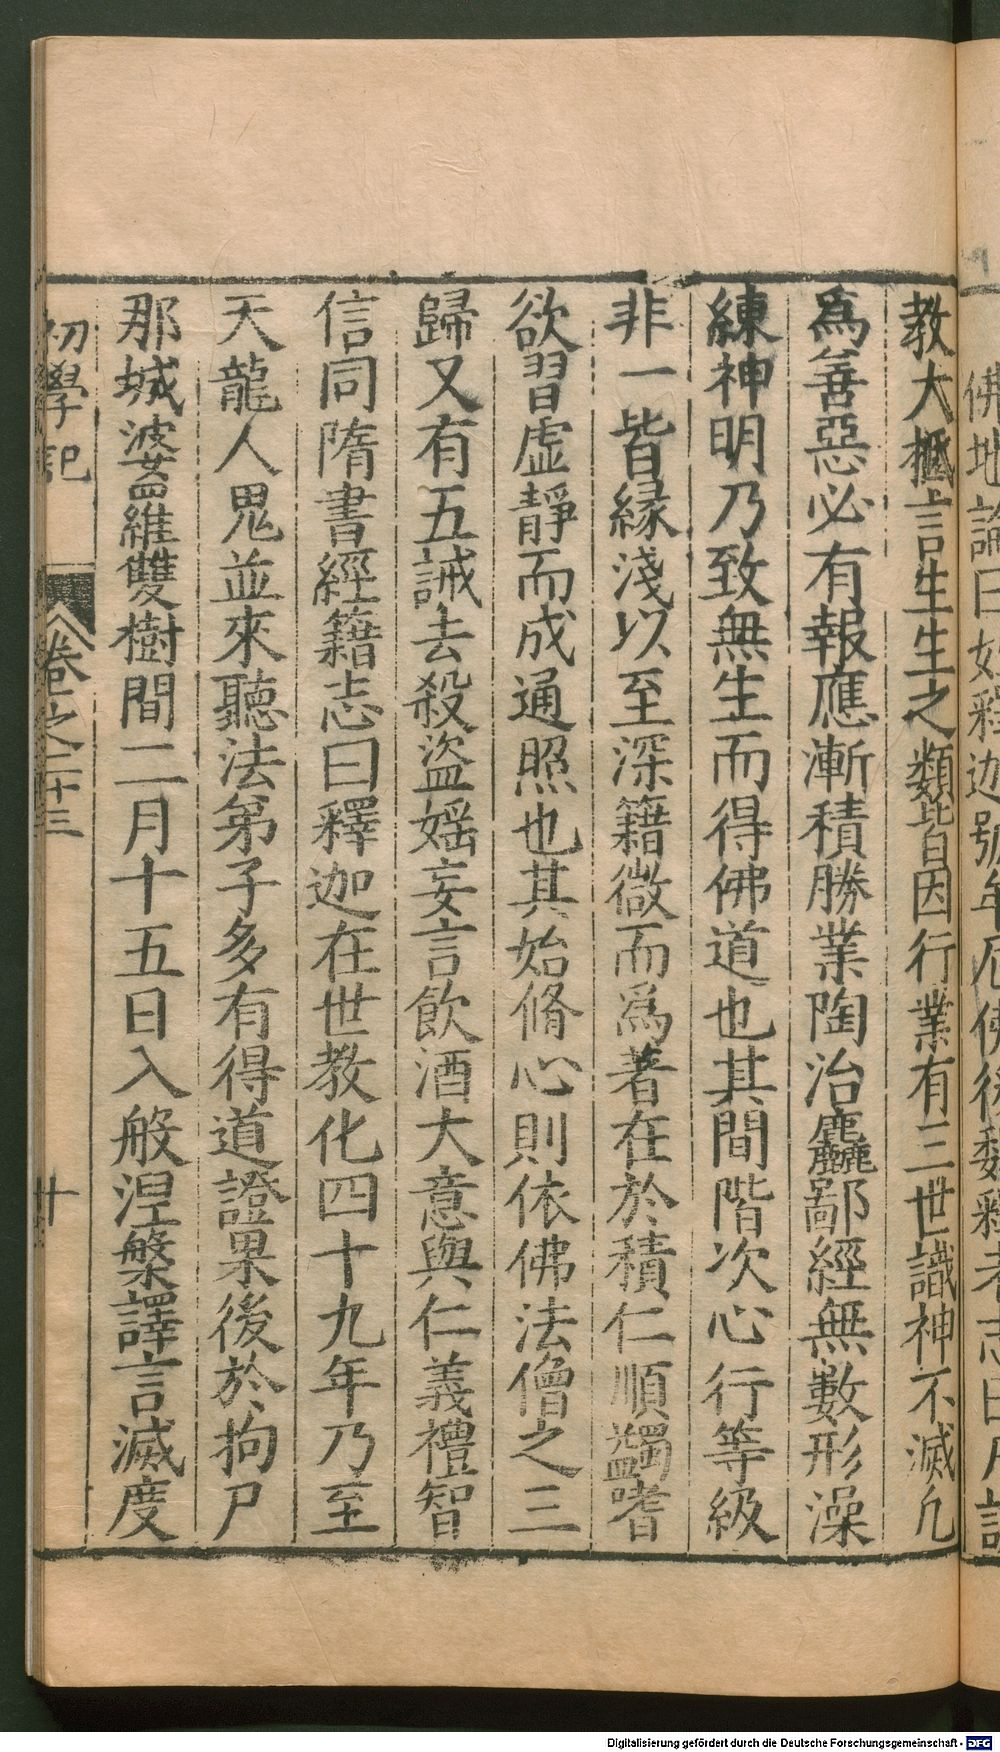 佛地論曰如釋迦號年尼佛後魏釋老志曰凡
教大抵上言生生之類皆因行業有三世識神不滅凡
爲善惡必有報應漸積勝業陶冶麤鄙經無數形澡
練神明乃致無生而得佛道也其間階次心行等級
非一皆緣淺以至深籍微而爲著在於積仁順蠲嗜
欲習虛靜而成通照也其始脩心則依佛法僧之三
歸又有五誡去殺盜婬妄言飲酒大意與仁義禮智
信同隋書經籍志曰釋迦在世教化四十九年乃至
天龍人鬼並來聽法弟子多有得道證果後於拘尸
那城娑羅維雙樹間二月十五日入般涅槃譯言滅度
初學記 卷之二十三 廿
Digitalisierung gefördert durch die Deutsche Forschungsgemeinschaft - DFG